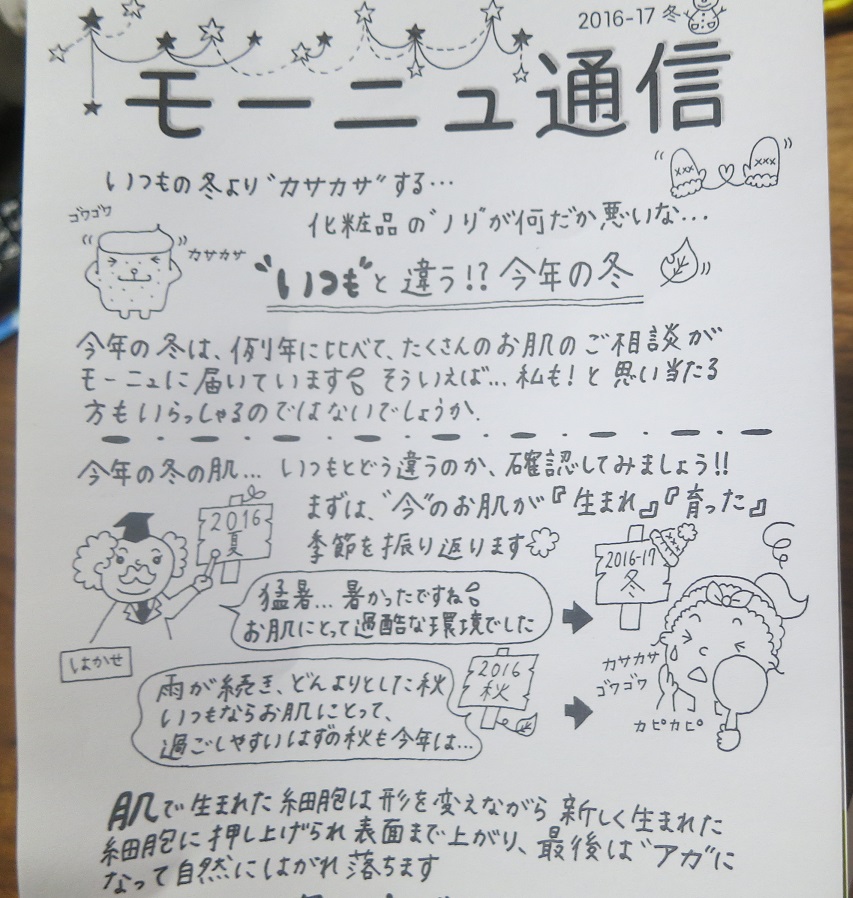 2016-17 冬
モーニュ通信
いつもの冬より"カサカサ"する…
化粧品の"ノリ"が何だか悪いな…
ゴワゴワ
カサカサ
"いつも"と違う!? 今年の冬
今年の冬は、例年に比べて、たくさんのお肌のご相談が
モーニュに届いています。そういえば…私も!と思い当たる
方もいらっしゃるのではないでしょうか.
今年の冬の肌… いつもとどう違うのか、確認してみましょう!!
まずは、"今"のお肌が『生まれ』『育った』
季節を振り返ります
2016
夏
2016-17
冬
猛暑…暑かったですね
お肌にとって過酷な環境でした
はかせ
カサカサ
ゴワゴワ
カピカピ
2016
秋
雨が続き、どんよりとした秋
いつもならお肌にとって、
過ごしやすいはずの秋も今年は…
肌で生まれた細胞は形を変えながら新しく生まれた
細胞に押し上げられ表面まで上がり、最後は"アカ"に
なって自然にはがれ落ちます